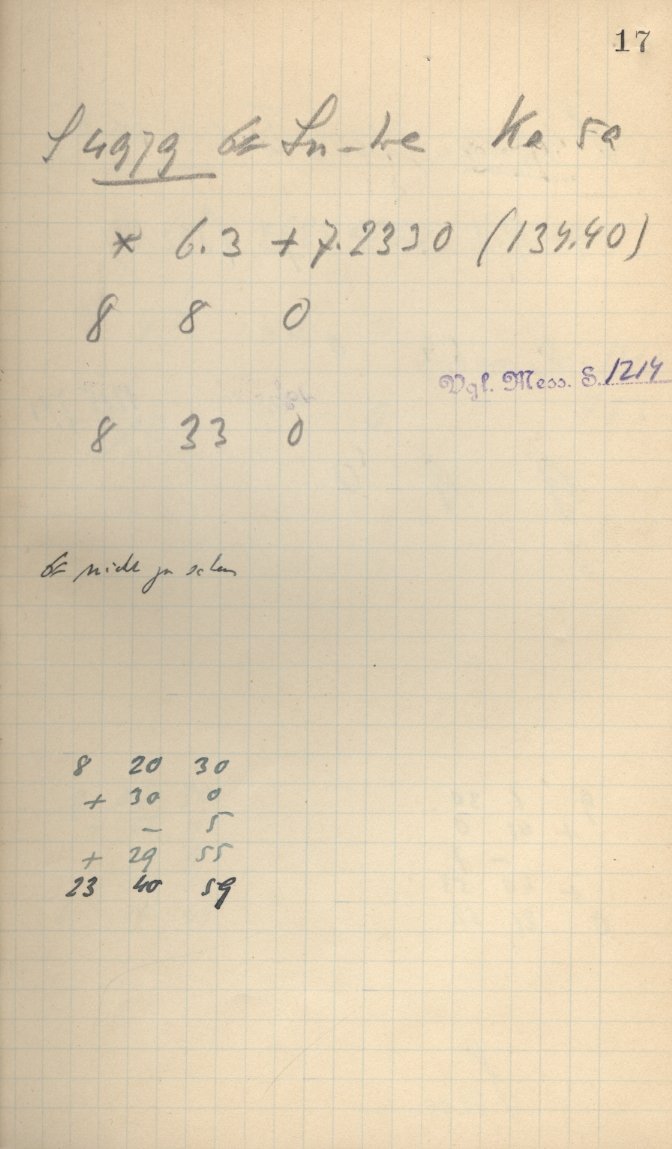 17
S 4979
* 6.3 + 7.2330 (134.40)
8 8 0
Vgl. Mess. S. 1214
8 33 0
nicht zu sehen
8 20 30
+ 30 0
– 5
+ 29 55
23 40 59